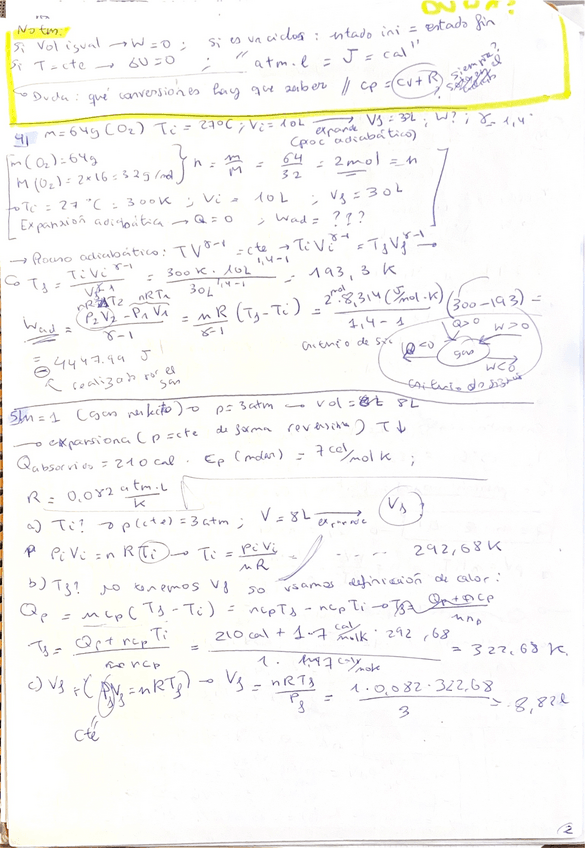 Notas:
Si Vol igual → W=0 ; si es un ciclo : estado ini = estado fin
Si T=cte → δU=0 ; "atm.l = J = cal"
→ Duda: qué conversiones hay que saber // cp = cv+R siempre?
4) m=64g (O2) Ti=27ºC ; Vi=10L expande → Vf=30L ; W? ; γ=1,4.
(proc adiabático)
m(O2)=64g
M(O2)=2×16=32g/mol
n = m/M = 64/32 = 2mol = n
→ Ti=27ºC=300K ; Vi=10L ; Vf=30L
Expansión adiabática → Q=0 , Wad=???
→ Proceso adiabático: TV^γ-1 = cte → TiVi^γ-1 = TfVf^γ-1 →
Tf = TiVi^γ-1/Vf^γ-1 = 300K · 10L^1,4-1/30L^1,4-1 = 193,3 K
nRT2 nRT1
Wad = P2V2-P1V1/γ-1 = nR/γ-1 (Tf-Ti) = 2mol·8,314(J/mol·K)/1,4-1 (300-193) =
= -4447,99 J
realizado por el gas
criterio de
Q>0 W>0
Q<0 gas W<0
criterio de signos
5) n=1 (gas perfecto) → p=3atm → vol=8L
→ expansiona (p=cte de forma reversible) T↓
Qabsorvios=210cal. cp (molar) = 7cal/mol K ;
R = 0,082 atm.L/K
a) Ti? → p(cte)=3atm ; V=8L expande → Vf
PiVi = nRTi → Ti = piVi/nR = .... 292,68K
b) Tf? no tenemos Vf so usamos definición de calor:
Qp = ncp(Tf-Ti) = ncpTf - ncpTi → Tf = Qp+ncp
Tf = Qp+ncpTi/ncp = 210cal + 1·7cal/molK · 292,68/1·7cal/molK = 322,68 K.
c) Vf → (PfVf=nRTf) → Vf = nRTf/Pf = 1·0,082·322,68/3 = 8,82l
cte
2